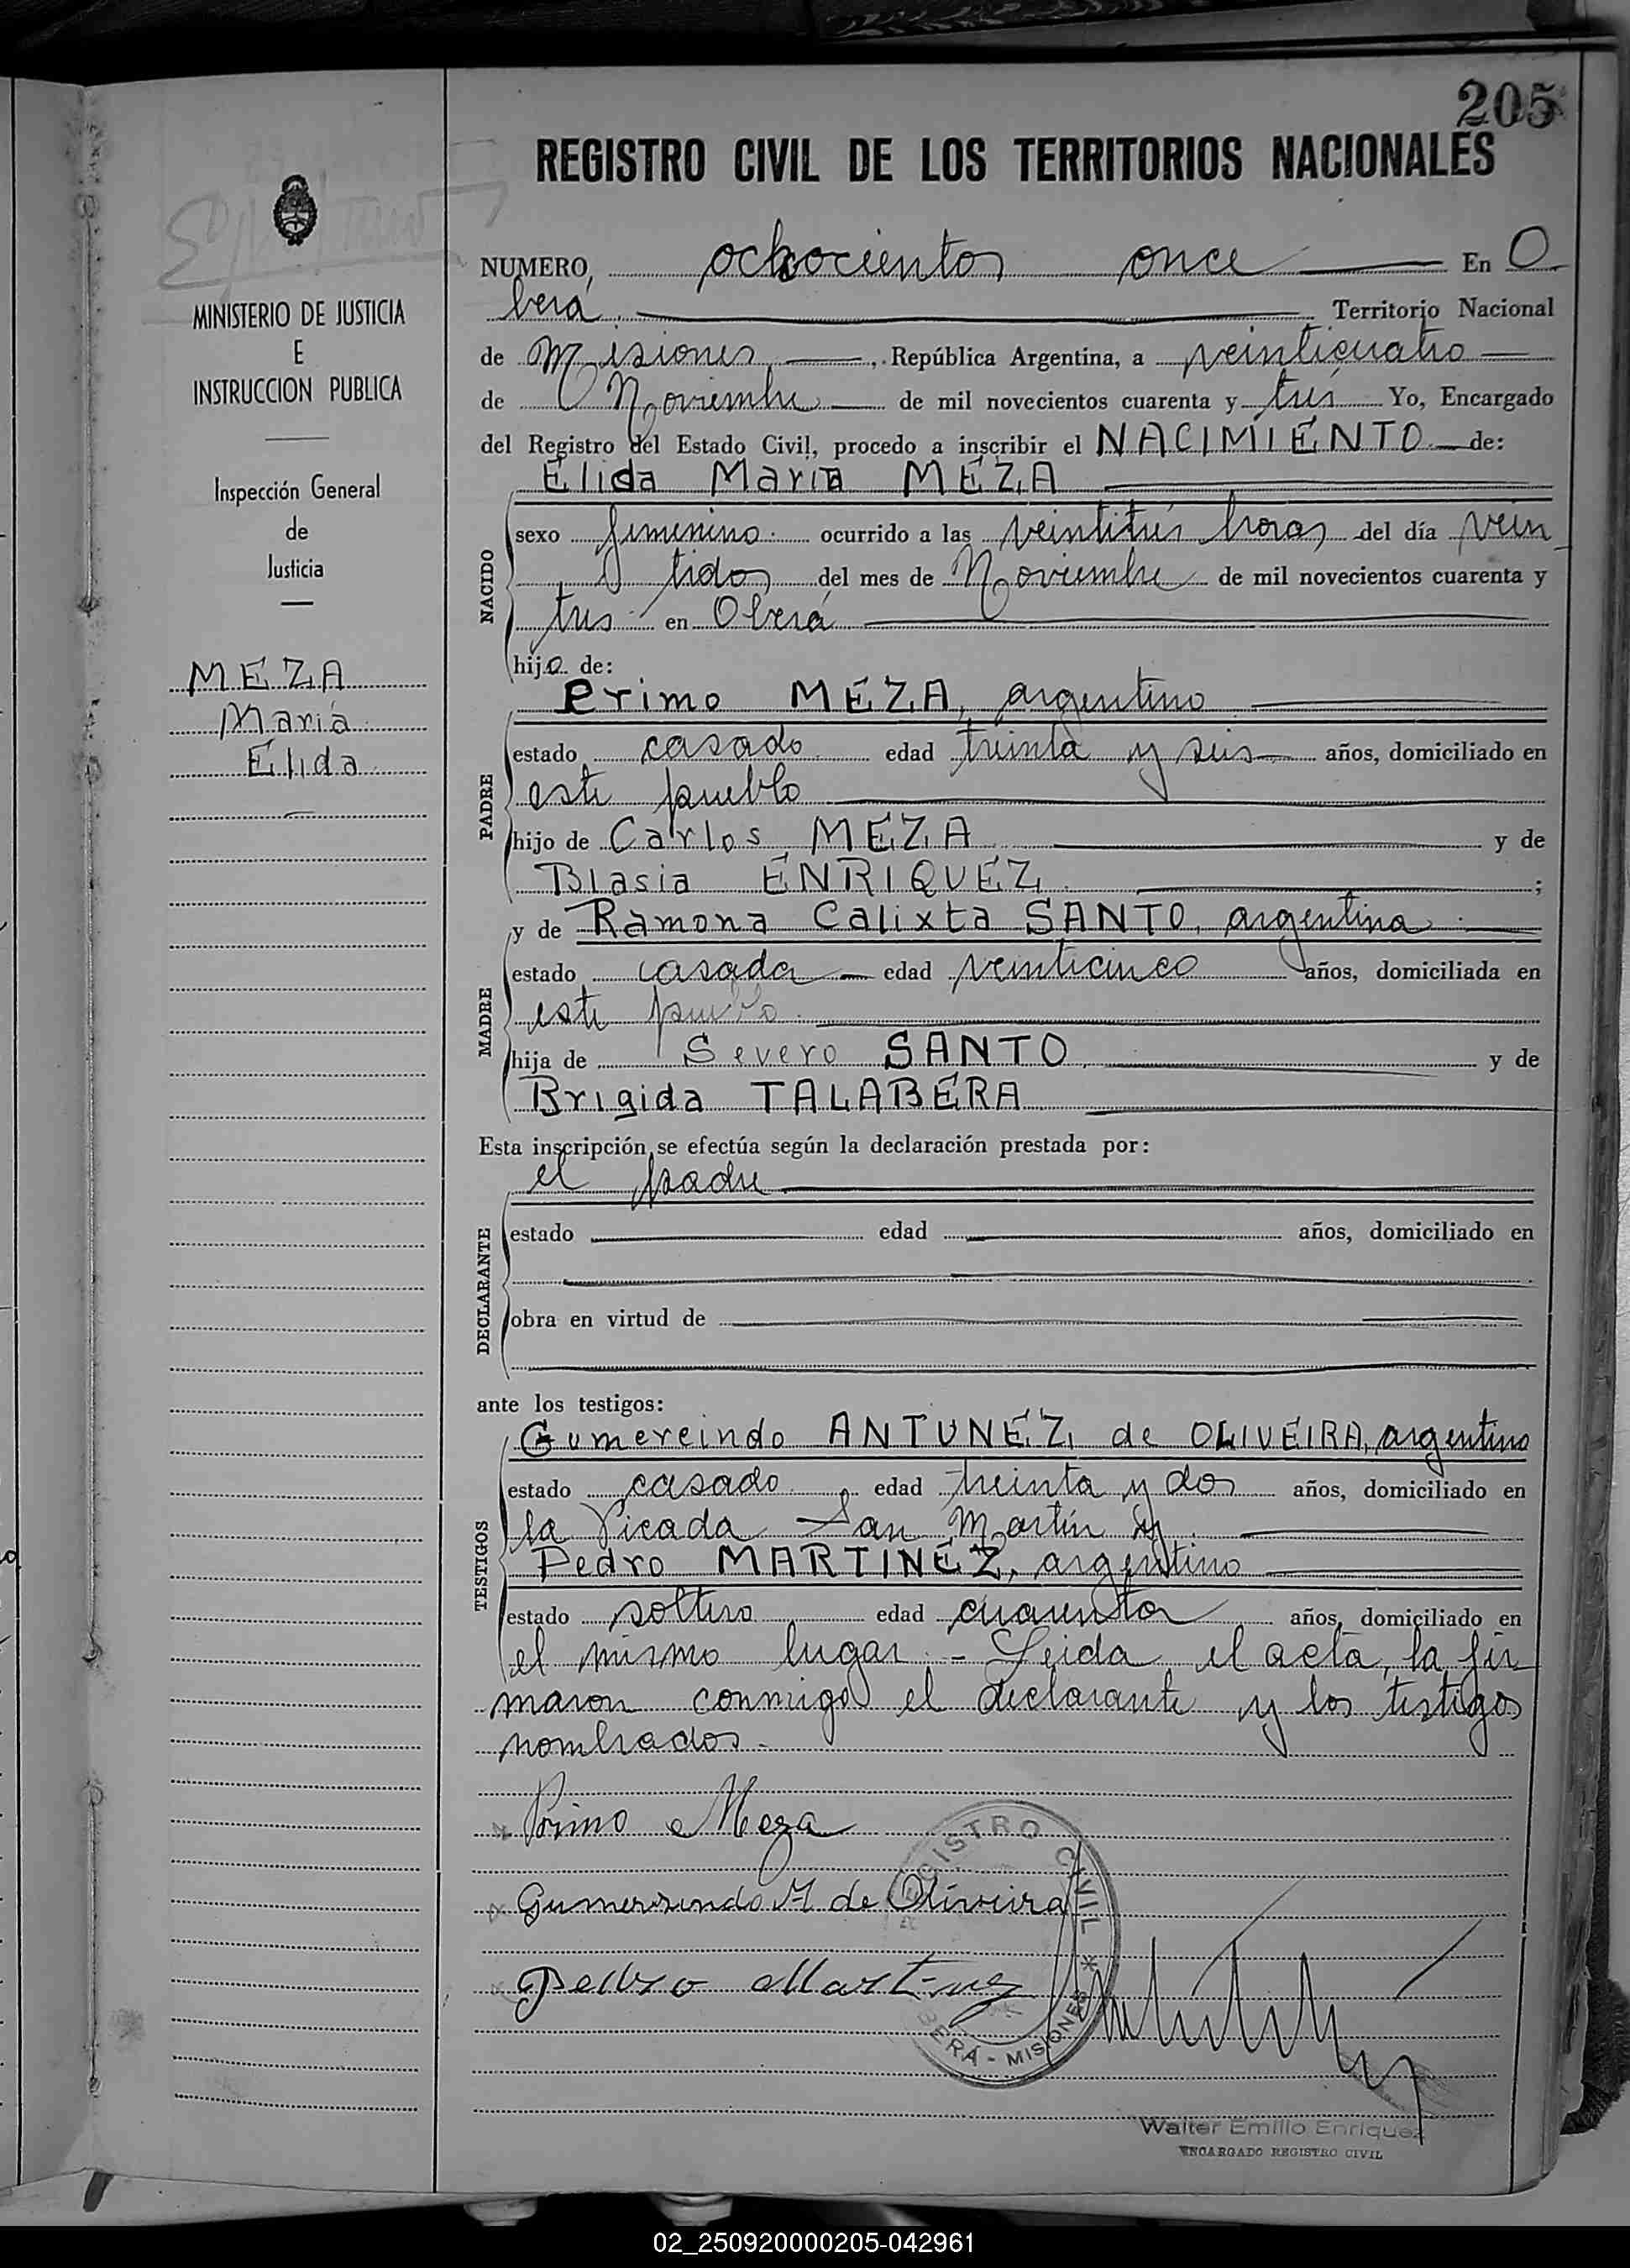 205
REGISTRO CIVIL DE LOS TERRITORIOS NACIONALES
MINISTERIO DE JUSTICIA
E
INSTRUCCION PUBLICA
Inspección General
de
Justicia
MEZA
María
Elida
NUMERO, ochocientos once En O
berá. Territorio Nacional
de Misiones, República Argentina, a veinticuatro
de Noviembre de mil novecientos cuarenta y tres Yo, Encargado
del Registro del Estado Civil, procedo a inscribir el NACIMIENTO de:
Elida Maria MEZA
NACIDO
sexo femenino. ocurrido a las veintitres horas del día vein
tidos del mes de Noviembre de mil novecientos cuarenta y
tres en Oberá
hija de:
Primo MEZA, argentino
PADRE
estado casado edad treinta y seis años, domiciliado en
este pueblo
hijo de Carlos MEZA y de
Blasia ENRIQUEZ ;
y de Ramona Calixta SANTO, argentina
MADRE
estado casada edad veinticinco años, domiciliada en
este pueblo
hija de Severo SANTO y de
Brigida TALABERA
Esta inscripción se efectúa según la declaración prestada por:
el padre
DECLARANTE
estado edad años, domiciliado en
obra en virtud de
ante los testigos:
TESTIGOS
Gumercindo ANTUNEZ de OLIVEIRA, argentino
estado casado edad treinta y dos años, domiciliado en
la Picada San Martín y
Pedro MARTINEZ, argentino
estado soltero edad cuarenta años, domiciliado en
el mismo lugar.- Leida el acta, la fir
maron conmigo el declarante y los testigos
nombrados.-
Primo Meza
Gumersindo A. de Oliveira
Pedro Martinez
REGISTRO CIVIL * OBERÁ - MISIONES
Walter Emilio Enriquez
ENCARGADO REGISTRO CIVIL
02_250920000205-042961